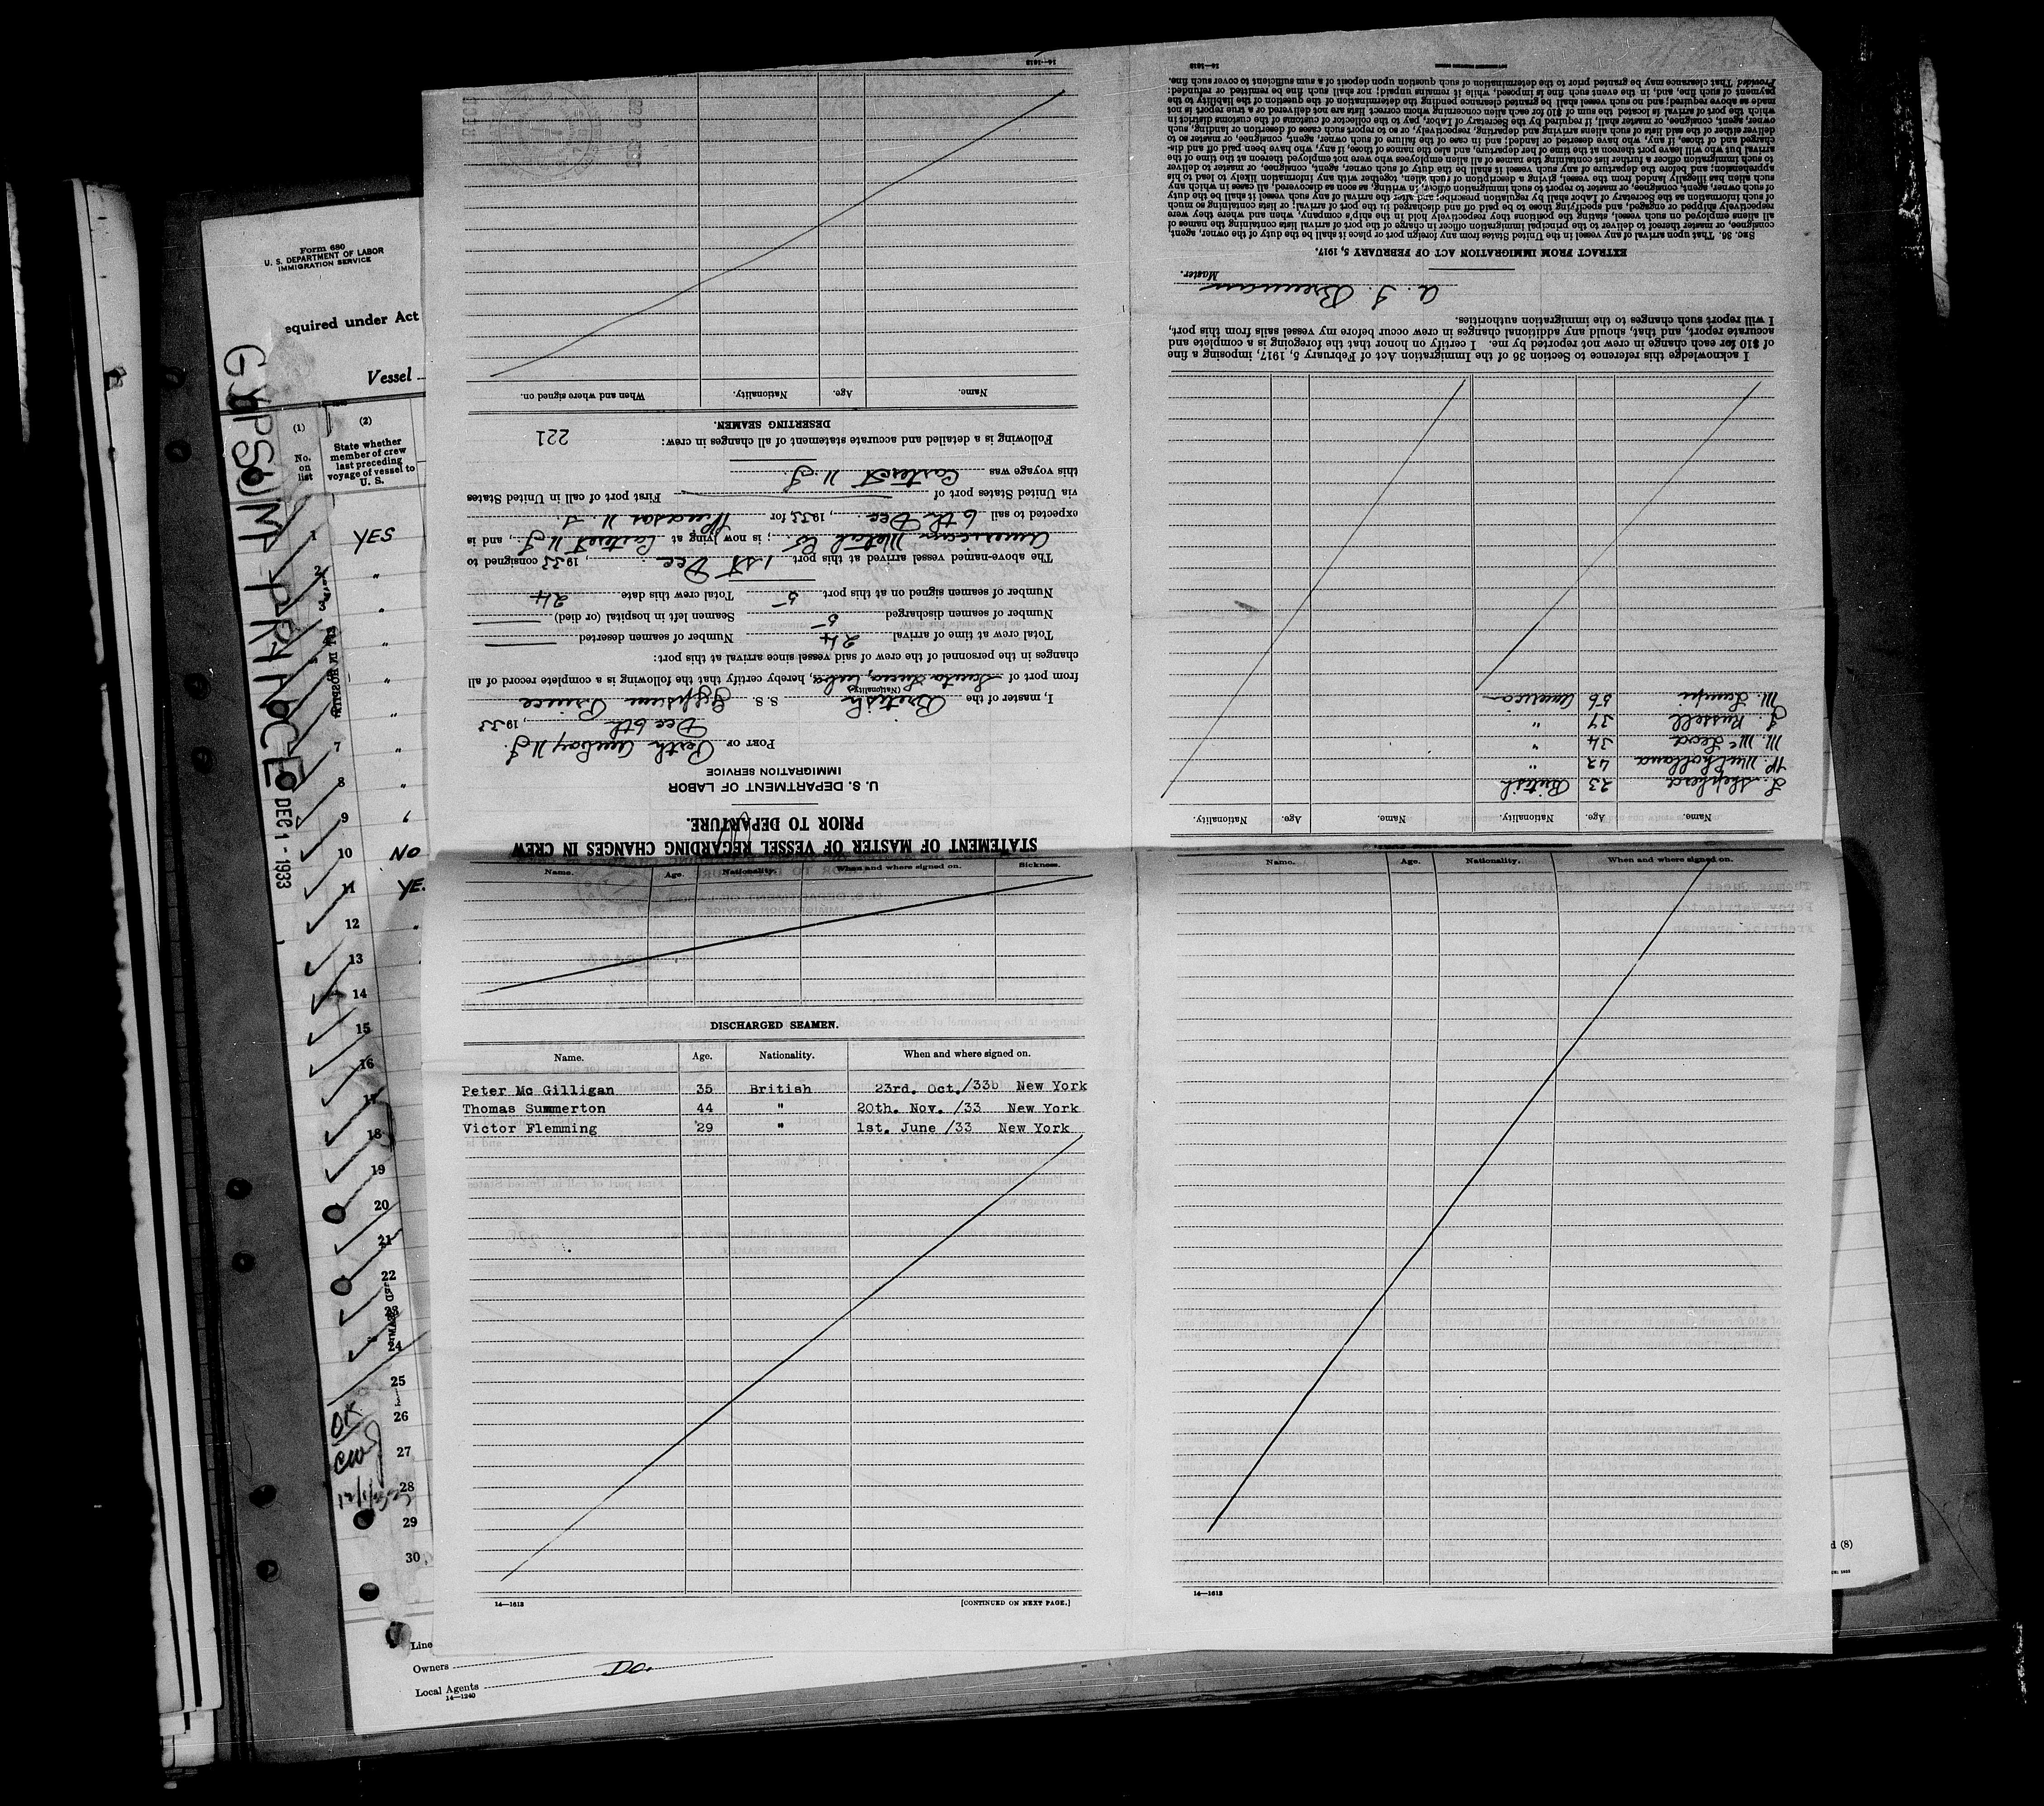 Form 680
U. S. DEPARTMENT OF LABOR
IMMIGRATION SERVICE
equired under Act
Vessel
GYPSUM PRINCE
DEC 1 - 1933
(1)
No.
on
list
(2)
State whether
member of crew
last preceding
voyage of vessel to
U. S.
1 YES
2 "
"
"
"
"
7 "
8 "
9 "
10 NO
11 YE
12 "
13
14
15
16
17
18
19
20
21
22
23
24
25
26
27
28
29
30
OK
Line
Owners
Local Agents
Do.
14—1240
STATEMENT OF MASTER OF VESSEL REGARDING CHANGES IN CREW
PRIOR TO DEPARTURE.
U. S. DEPARTMENT OF LABOR
IMMIGRATION SERVICE
PORT OF Perth Amboy N. J.
Dec 6th, 1933
I, master of the British S. S. Gypsum Prince
(Nationality)
from port of Santa Lucia, Cuba, hereby certify that the following is a complete record of all
changes in the personnel of the crew of said vessel since arrival at this port:
Total crew at time of arrival 24 Number of seamen deserted
Number of seamen discharged 5 Seamen left in hospital (or died)
Number of seamen signed on at this port 5 Total crew this date 24
The above-named vessel arrived at this port 1st Dec, 1933 consigned to
American Metal Co; is now lying at Carteret N. J., and is
expected to sail 6th Dec, 1933 for Windsor N. S.
via United States port of First port of call in United States
this voyage was Carteret N. J.
Following is a detailed and accurate statement of all changes in crew: 221
DESERTING SEAMEN.
Name. Age. Nationality. When and where signed on.
14—1613
Name. Age. Nationality. When and where signed on. Sickness.
DISCHARGED SEAMEN.
Name. Age. Nationality. When and where signed on.
Peter Mc Gilligan 35 British 23rd. Oct./33b New York
Thomas Summerton 44 " 20th. Nov. /33 New York
Victor Flemming 29 " 1st. June /33 New York
14—1613 [CONTINUED ON NEXT PAGE.]
Name. Age. Nationality. When and where signed on.
14—1613
Name. Age. Nationality. Name. Age. Nationality.
L. Shepherd 23 British
P. Mulholland 42 "
M. McLeod 34 "
J. Russell 37 "
M. 56 America
I acknowledge this reference to Section 36 of the Immigration Act of February 5, 1917, imposing a fine
of $10 for each change in crew not reported by me. I certify on honor that the foregoing is a complete and
accurate report, and that, should any additional changes in crew occur before my vessel sails from this port,
I will report such changes to the immigration authorities.
Master.
EXTRACT FROM IMMIGRATION ACT OF FEBRUARY 5, 1917.
SEC. 36. That upon arrival of any vessel in the United States from any foreign port or place it shall be the duty of the owner, agent,
consignee, or master thereof to deliver to the principal immigration officer in charge of the port of arrival lists containing the names of
all aliens employed on such vessel, stating the positions they respectively hold in the ship's company, when and where they were
respectively shipped or engaged, and specifying those to be paid off and discharged in the port of arrival; or lists containing so much
of such information as the Secretary of Labor shall by regulation prescribe; and after the arrival of any such vessel it shall be the duty
of such owner, agent, consignee, or master to report to such immigration officer, in writing, as soon as discovered, all cases in which any
such alien has illegally landed from the vessel, giving a description of such alien, together with any information likely to lead to his
apprehension; and before the departure of any such vessel it shall be the duty of such owner, agent, consignee, or master to deliver
to such immigration officer a further list containing the names of all alien employees who were not employed thereon at the time of the
arrival but who will leave port thereon at the time of her departure, and also the names of those, if any, who have been paid off and dis-
charged and of those, if any, who have deserted or landed; and in case of the failure of such owner, agent, consignee, or master so to
deliver either of the said lists of such aliens arriving and departing, respectively, or so to report such cases of desertion or landing, such
owner, agent, consignee, or master shall, if required by the Secretary of Labor, pay to the collector of customs of the customs district in
which the port of arrival is located the sum of $10 for each alien concerning whom correct lists are not delivered or a true report is not
made as above required; and no such vessel shall be granted clearance pending the determination of the question of the liability to the
payment of such fine, and, in the event such fine is imposed, while it remains unpaid; nor shall such fine be remitted or refunded:
Provided That clearance may be granted prior to the determination of such question upon deposit of a sum sufficient to cover such fine.
14—1613
d (8)